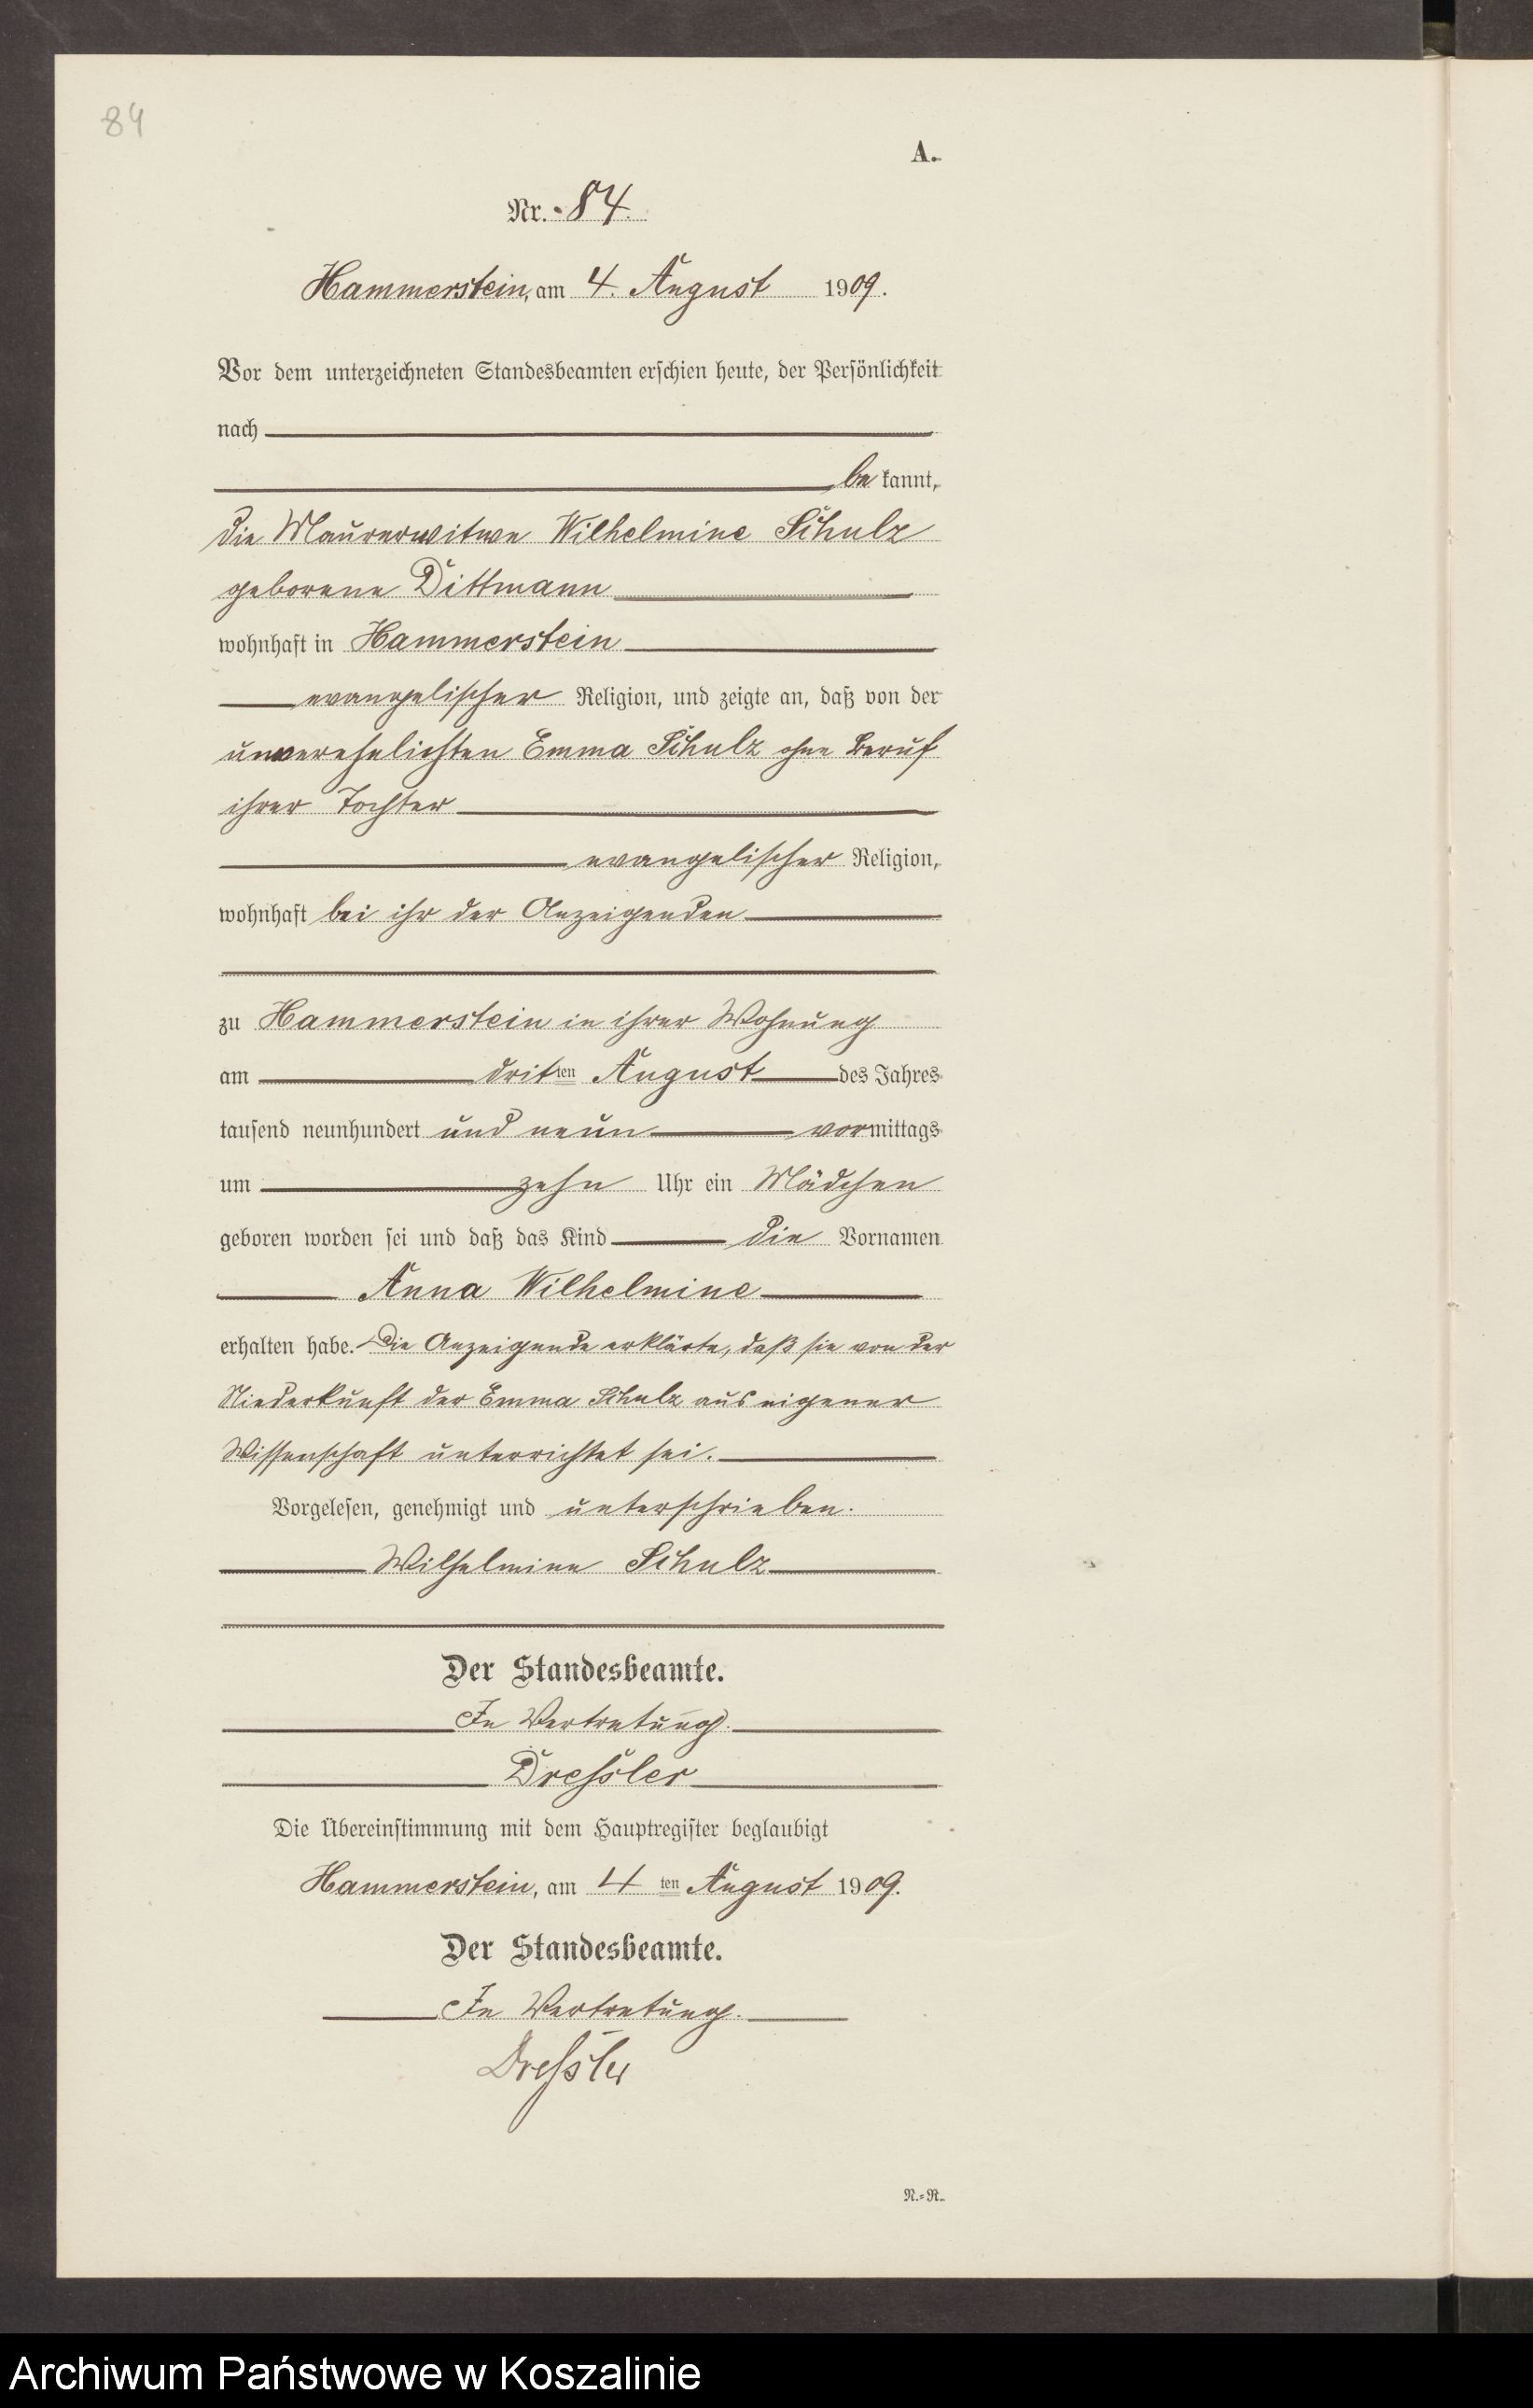 84
A.
Nr. 84.
Hammerstein, am 4. August 1909.
Vor dem unterzeichneten Standesbeamten erschien heute, der Persönlichkeit
nach
bekannt,
die Maurerwitwe Wilhelmine Schulz
geborene Dittmann
wohnhaft in Hammerstein
evangelischer Religion, und zeigte an, daß von der
unverehelichten Emma Schulz ohne Beruf
ihrer Tochter
evangelischer Religion,
wohnhaft bei ihr der Anzeigenden
zu Hammerstein in ihrer Wohnung
am dritten August des Jahres
tausend neunhundert und neun vormittags
um zehn Uhr ein Mädchen
geboren worden sei und daß das Kind die Vornamen
Anna Wilhelmine
erhalten habe. Die Anzeigende erklärte, daß sie von der
Niederkunft der Emma Schulz aus eigener
Wissenschaft unterrichtet sei.
Vorgelesen, genehmigt und unterschrieben.
Wilhelmine Schulz
Der Standesbeamte.
In Vertretung.
Dressler
Die Übereinstimmung mit dem Hauptregister beglaubigt
Hammerstein, am 4ten August 1909.
Der Standesbeamte.
In Vertretung.
Dressler
N.=R.
Archiwum Państwowe w Koszalinie